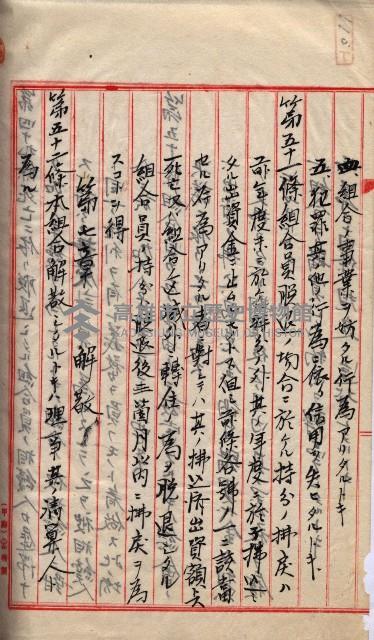 四、組合ノ事業ヲ妨クル行為アリタルトキ
五、犯罪其ノ他ノ行為ニ依リ信用ヲ失ヒタルトキ
第五十一條 組合員脱退ノ場合ニ於ケル持分ノ拂戻ハ
前年度末ニ於ケル 其ノ年度ニ於テ拂込ミ
タル出資金ニ止ムルモノトス但シ前條各號ノ一ニ該當
セル行為アリタル者ニ對シテハ其ノ拂込濟出資額ト
死亡又ハ組合ノ區域外ニ轉住ノ為メ脱退シタル
組合員ノ持分ハ脱退後三箇月以内ニ拂戻ヲ為
スコトヲ得
第七章 解散
第五十二條 本組合解散シタルトキハ理事其清算人ト
為ル